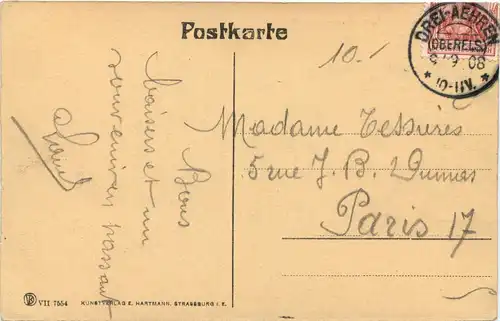 Postkarte
DREI-AEHREN
(OBERELS.)
9 08
10-11V.
10.-
Bons
baisers et un
souvenir en passant
Madame Tessières
5 rue J. B. Dumas
Paris 17
VII 7554
KUNSTVERLAG E. HARTMANN, STRASSBURG I. E.